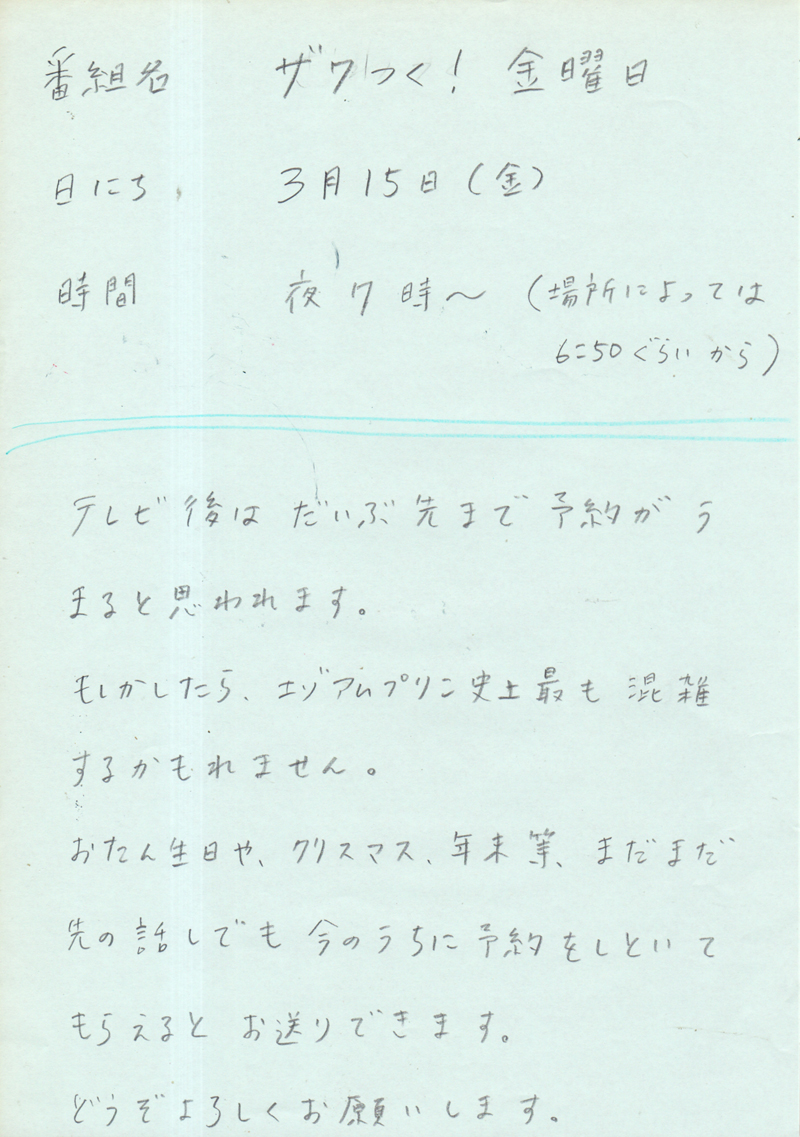 番組名 ザワつく! 金曜日
日にち 3月15日(金)
時間 夜7時～ (場所によっては
6:50ぐらいから)
テレビ後は だいぶ先まで予約がう
まると思われます。
もしかしたら、エゾアムプリン史上最も混雑
するかもれません。
おたん生日や、クリスマス、年末等、まだまだ
先の話しでも今のうちに予約をしといて
もらえるとお送りできます。
どうぞよろしくお願いします。